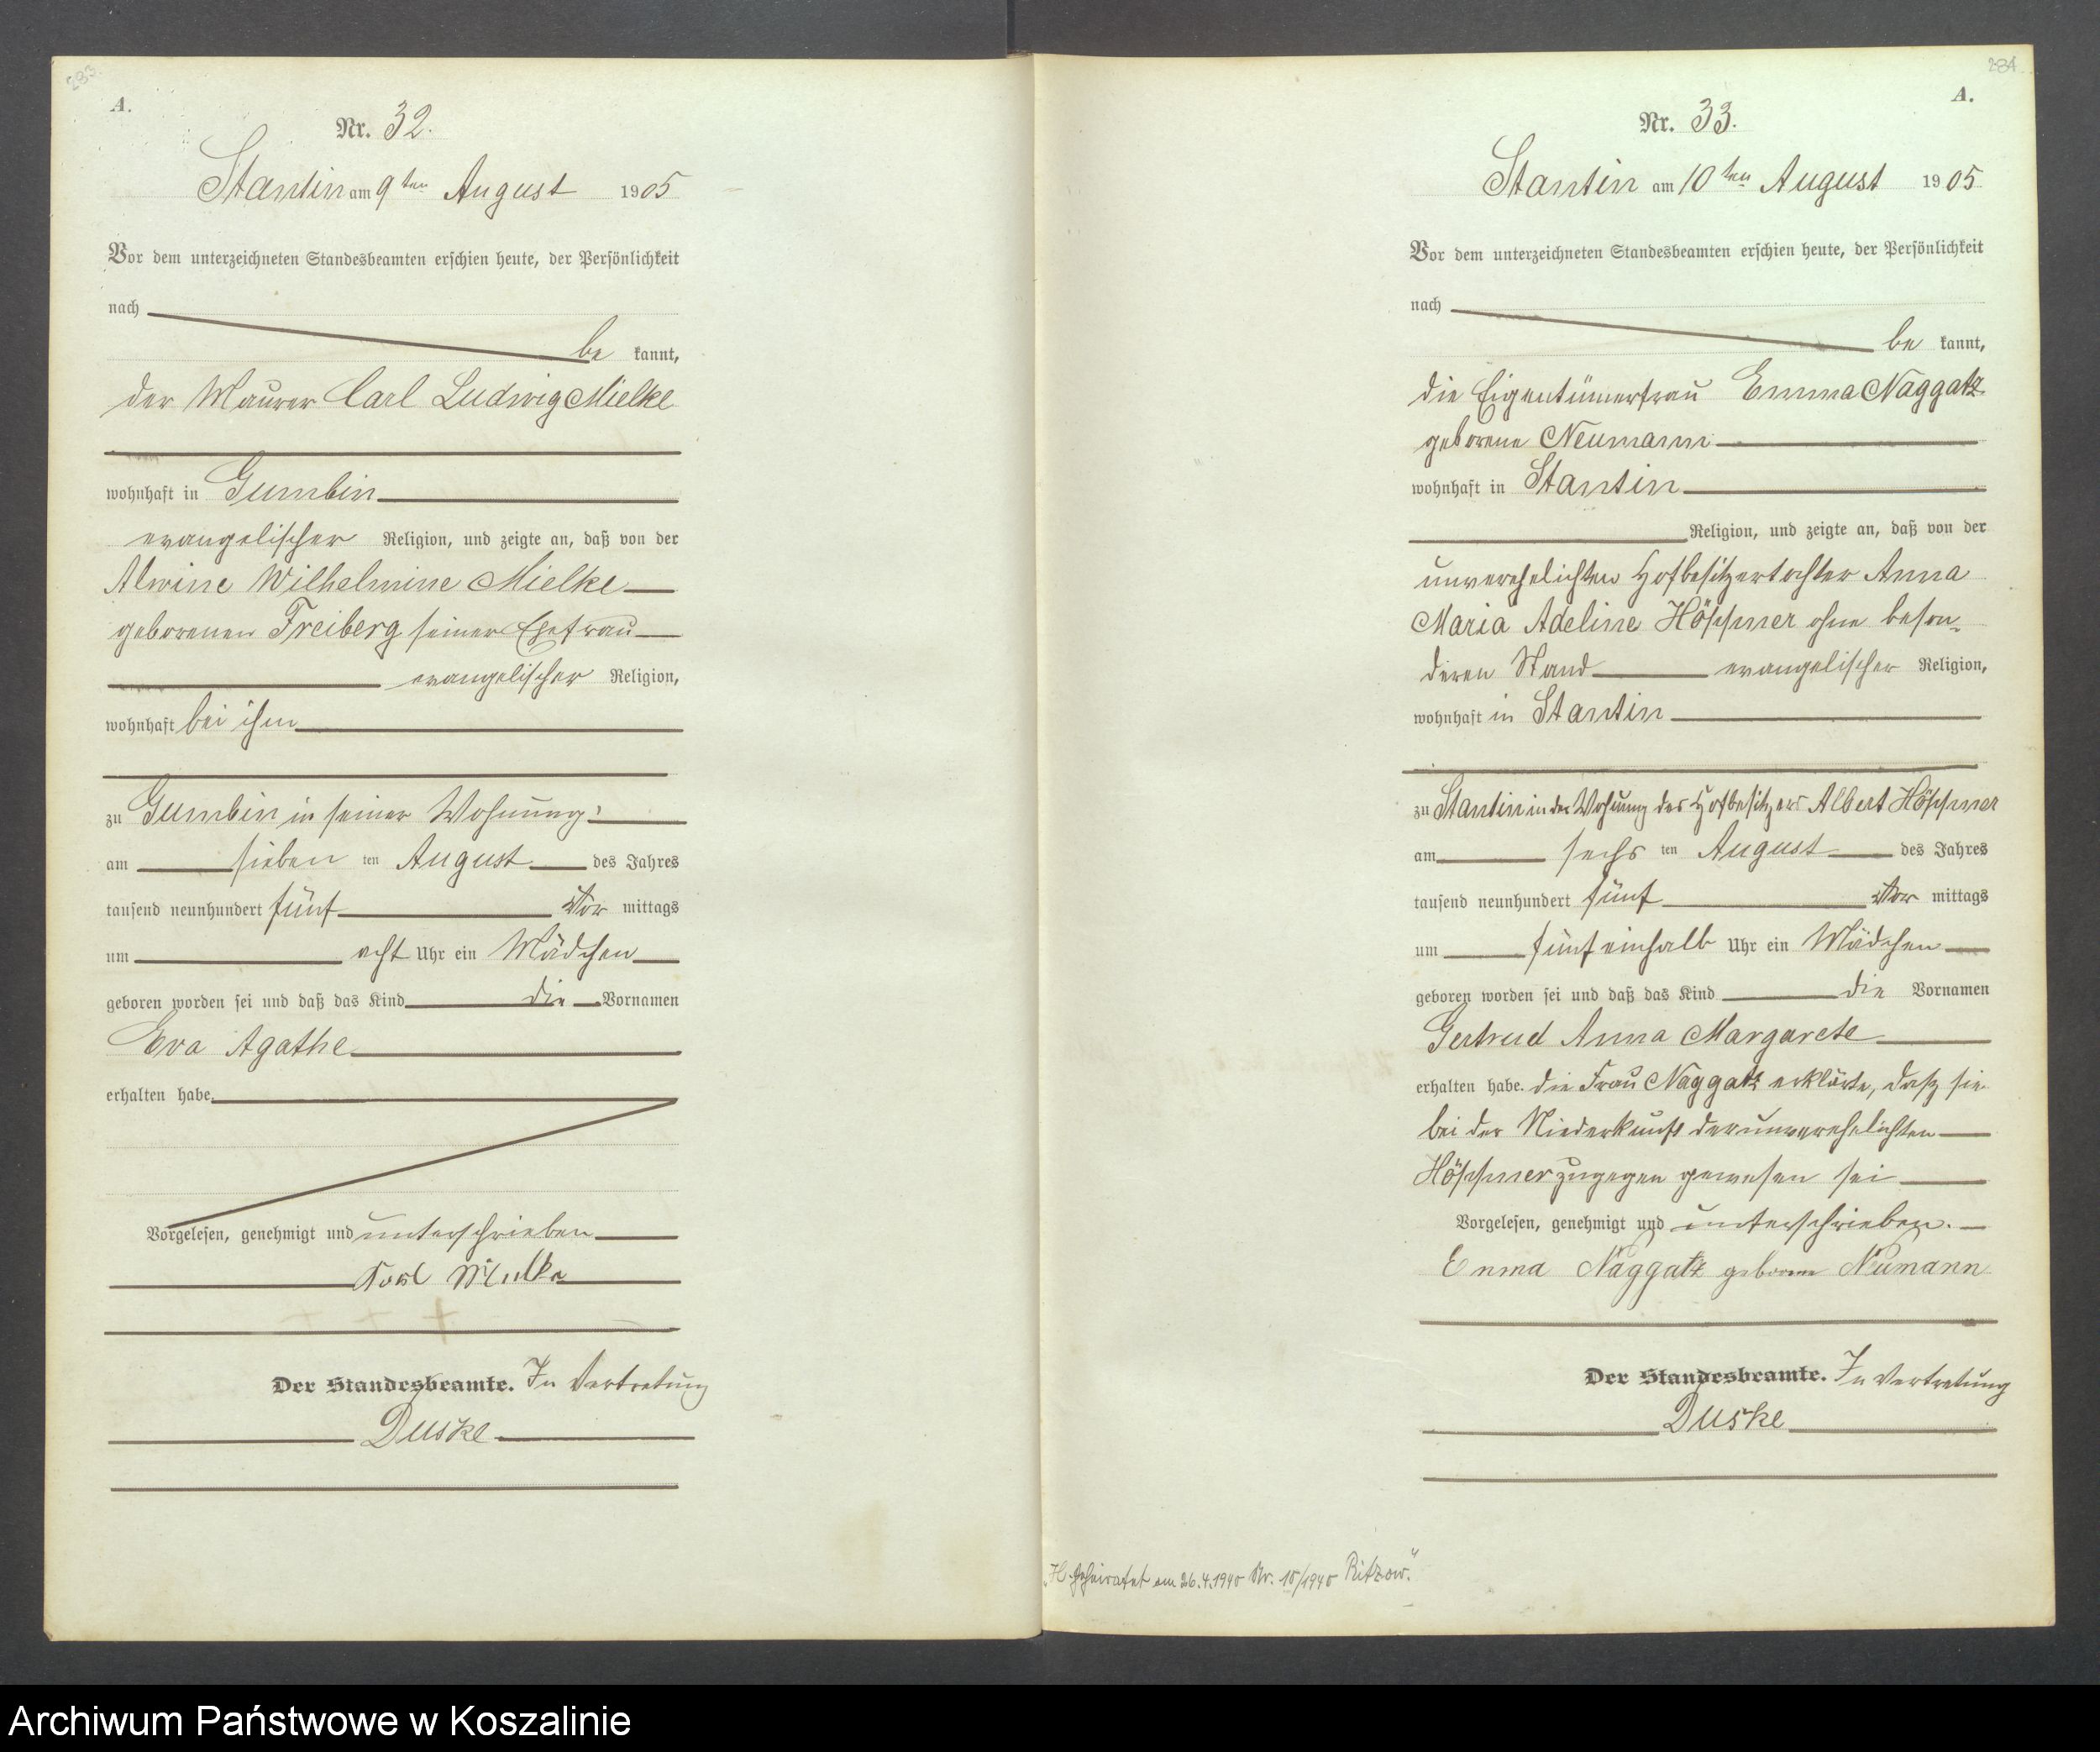 233.
A.
Nr. 32.
Stantin am 9ten August 1905
Vor dem unterzeichneten Standesbeamten erschien heute, der Persönlichkeit
nach
be kannt,
der Maurer Carl Ludwig Mielke
wohnhaft in Gumbin
evangelischer Religion, und zeigte an, daß von der
Alwine Wilhelmine Mielke
geborenen Freiberg seiner Ehefrau
evangelischer Religion,
wohnhaft bei ihm
zu Gumbin in seiner Wohnung:
am sieben ten August des Jahres
tausend neunhundert fünf Vor mittags
um acht Uhr ein Mädchen
geboren worden sei und daß das Kind die Vornamen
Eva Agathe
erhalten habe.
Vorgelesen, genehmigt und unterschrieben
Karl Mielke
Der Standesbeamte. In Vertretung
Duske
234
A.
Nr. 33.
Stantin am 10ten August 1905
Vor dem unterzeichneten Standesbeamten erschien heute, der Persönlichkeit
nach
be kannt,
die Eigentümerfrau Emma Naggatz
geborene Neumann
wohnhaft in Stantin
Religion, und zeigte an, daß von der
unverehelichten Hofbesitzertochter Anna
Maria Adeline Höppner ohne beson-
deren Stand evangelischer Religion,
wohnhaft in Stantin
zu Stantin in der Wohnung des Hofbesitzers Albert Höppner
am sechs ten August des Jahres
tausend neunhundert fünf Vor mittags
um fünf einhalb Uhr ein Mädchen
geboren worden sei und daß das Kind die Vornamen
Gertrud Anna Margarete
erhalten habe. die Frau Naggatz erklärte, daß sie
bei der Niederkunft der unverehelichten
Höppner zugegen gewesen sei
Vorgelesen, genehmigt und unterschrieben.
Emma Naggatz geborene Neumann
Der Standesbeamte. In Vertretung
Duske
"H. geheiratet am 26.4.1940 Nr. 10/1940 Ritzow."
Archiwum Państwowe w Koszalinie